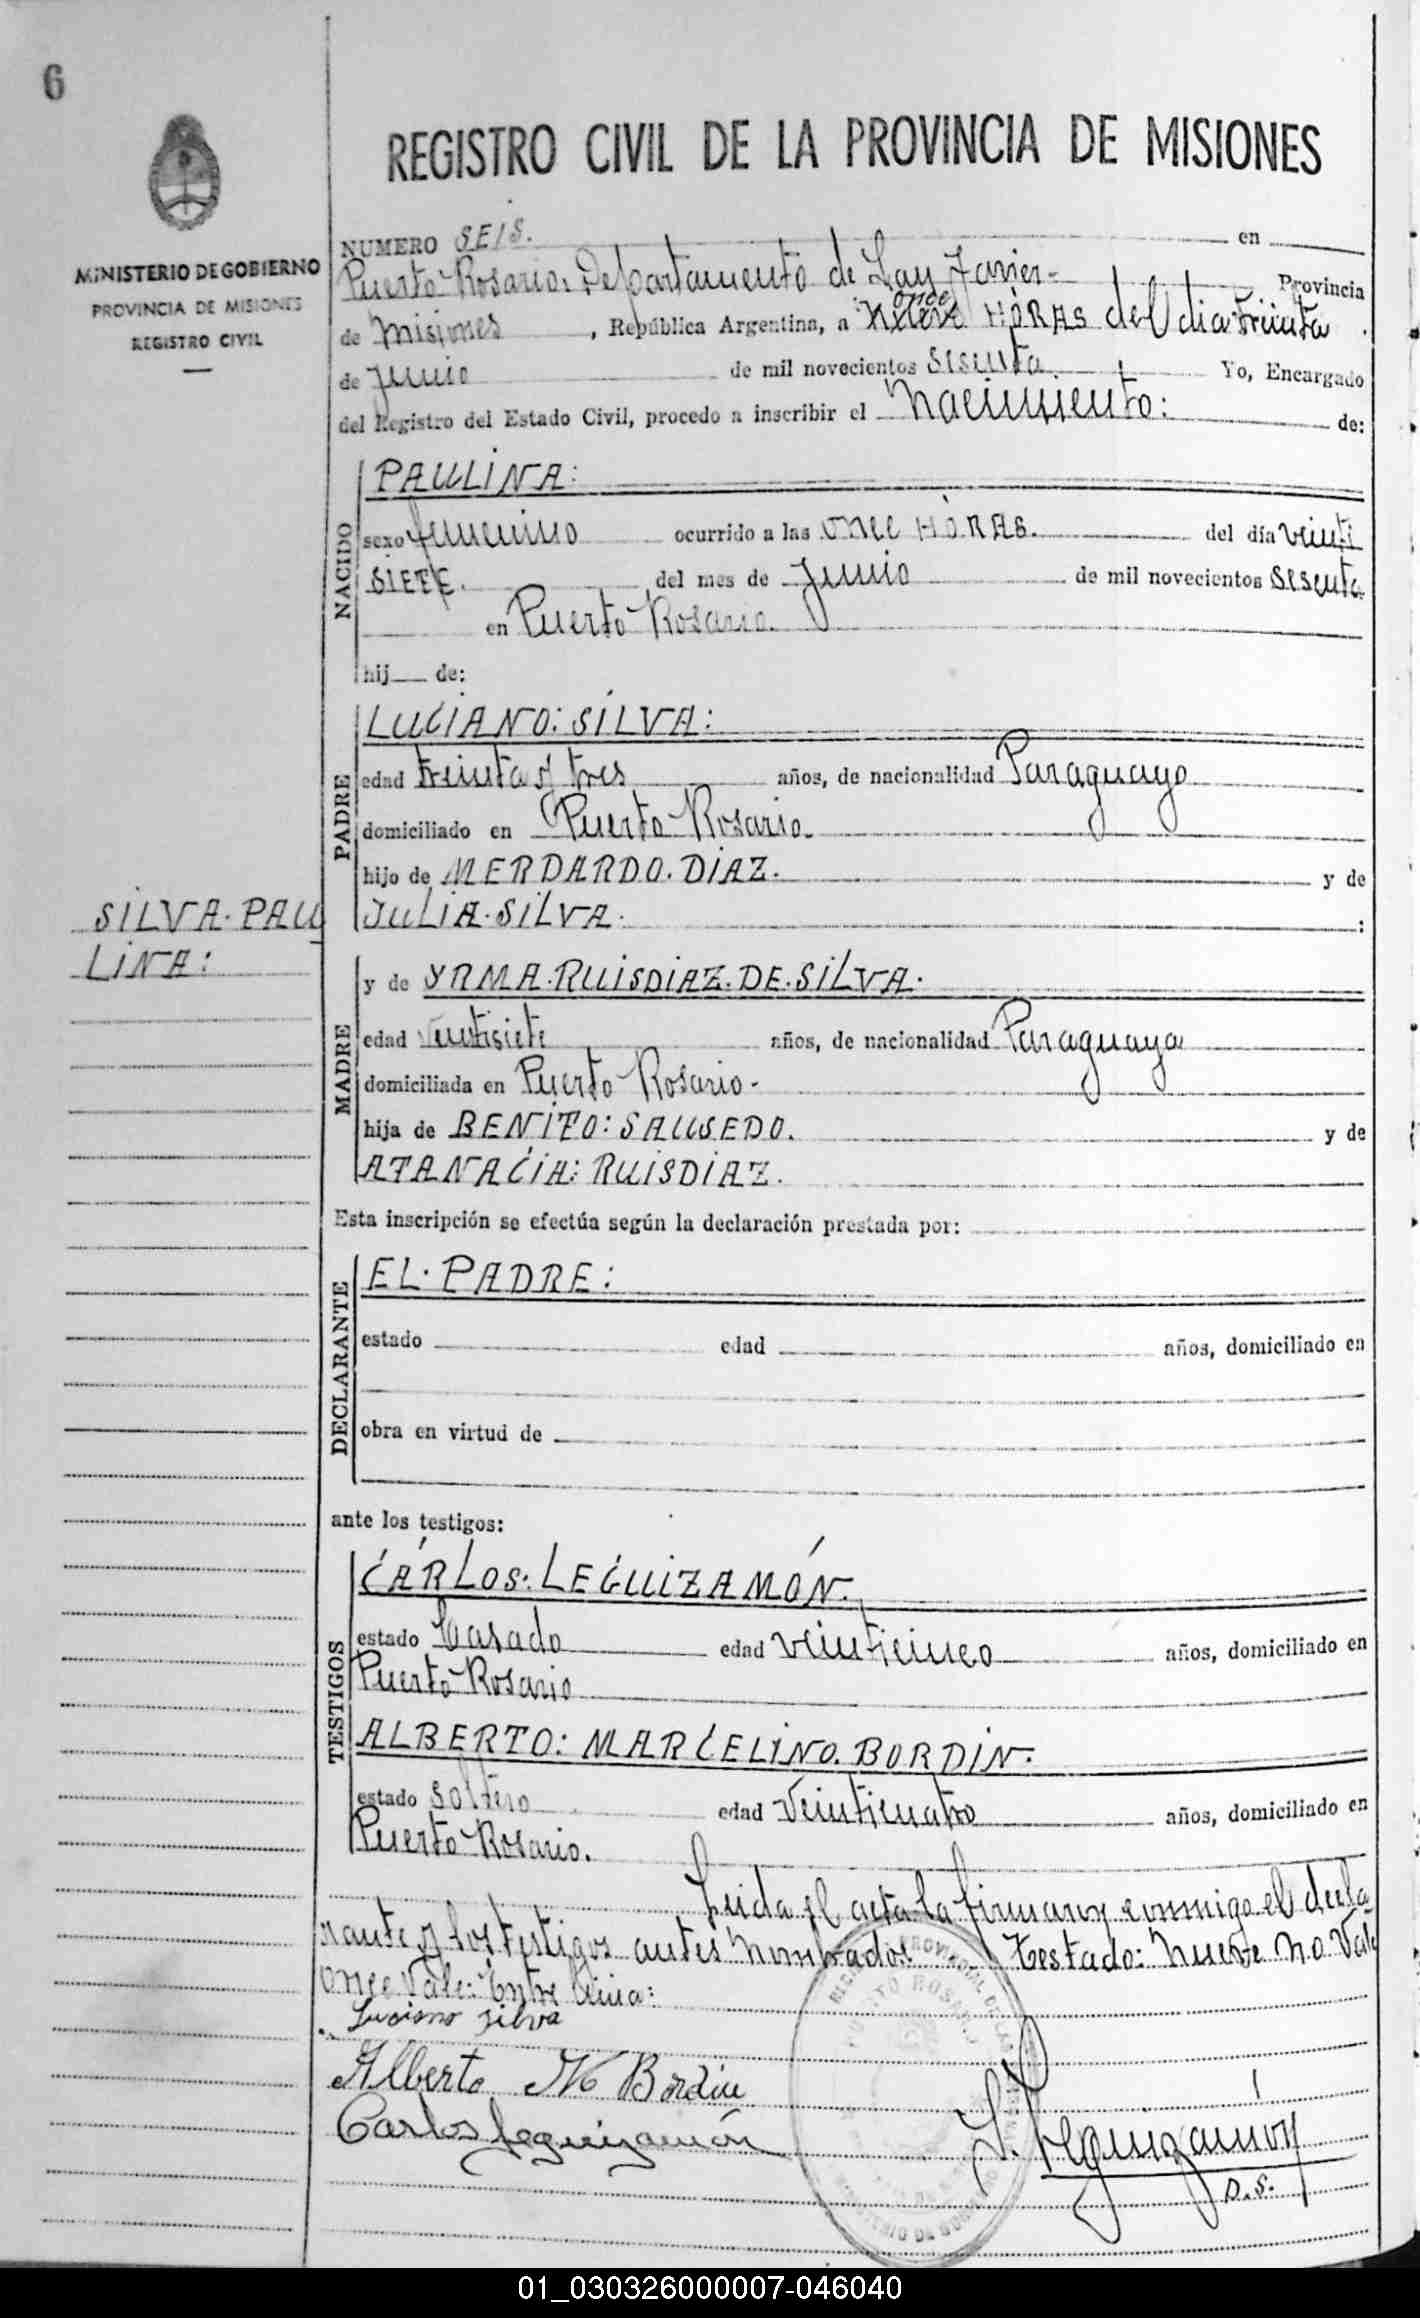 6
MINISTERIO DE GOBIERNO
PROVINCIA DE MISIONES
REGISTRO CIVIL
REGISTRO CIVIL DE LA PROVINCIA DE MISIONES
NUMERO SEIS. en
Puerto Rosario. Departamento de San Javier- Provincia
once
de Misiones , República Argentina, a nueve HORAS del dia treinta .
de Junio de mil novecientos sesenta Yo, Encargado
del Registro del Estado Civil, procedo a inscribir el Nacimiento: de:
NACIDO
PAULINA:
sexo femenino ocurrido a las once HORAS. del día veinti
SIETE. del mes de Junio de mil novecientos sesenta
en Puerto Rosario.
hij de:
PADRE
LUCIANO: SILVA:
edad treinta y tres años, de nacionalidad Paraguayo
domiciliado en Puerto Rosario.
hijo de MERDARDO. DIAZ. y de
JULIA. SILVA. :
SILVA. PAU
LINA:
MADRE
y de YRMA. RUISDIAZ. DE. SILVA.
edad veintisiete años, de nacionalidad Paraguaya
domiciliada en Puerto Rosario-
hija de BENITO: SAUSEDO. y de
ATANACIA: RUISDIAZ.
Esta inscripción se efectúa según la declaración prestada por:
DECLARANTE
EL. PADRE:
estado edad años, domiciliado en
obra en virtud de
ante los testigos:
TESTIGOS
CARLOS: LEGUIZAMÓN.
estado Casado edad veinticinco años, domiciliado en
Puerto Rosario
ALBERTO: MARCELINO. BORDIN.
estado soltero edad veinticuatro años, domiciliado en
Puerto Rosario.
Leida el acta la firmaron conmigo el decla
rante y los testigos antes nombrados. Testado: nueve no Vale
once Vale: Entre linia:
Luciano Silva
Alberto M Bordin
Carlos Leguizamón
L. Leguizamón
D.S.
01_030326000007-046040